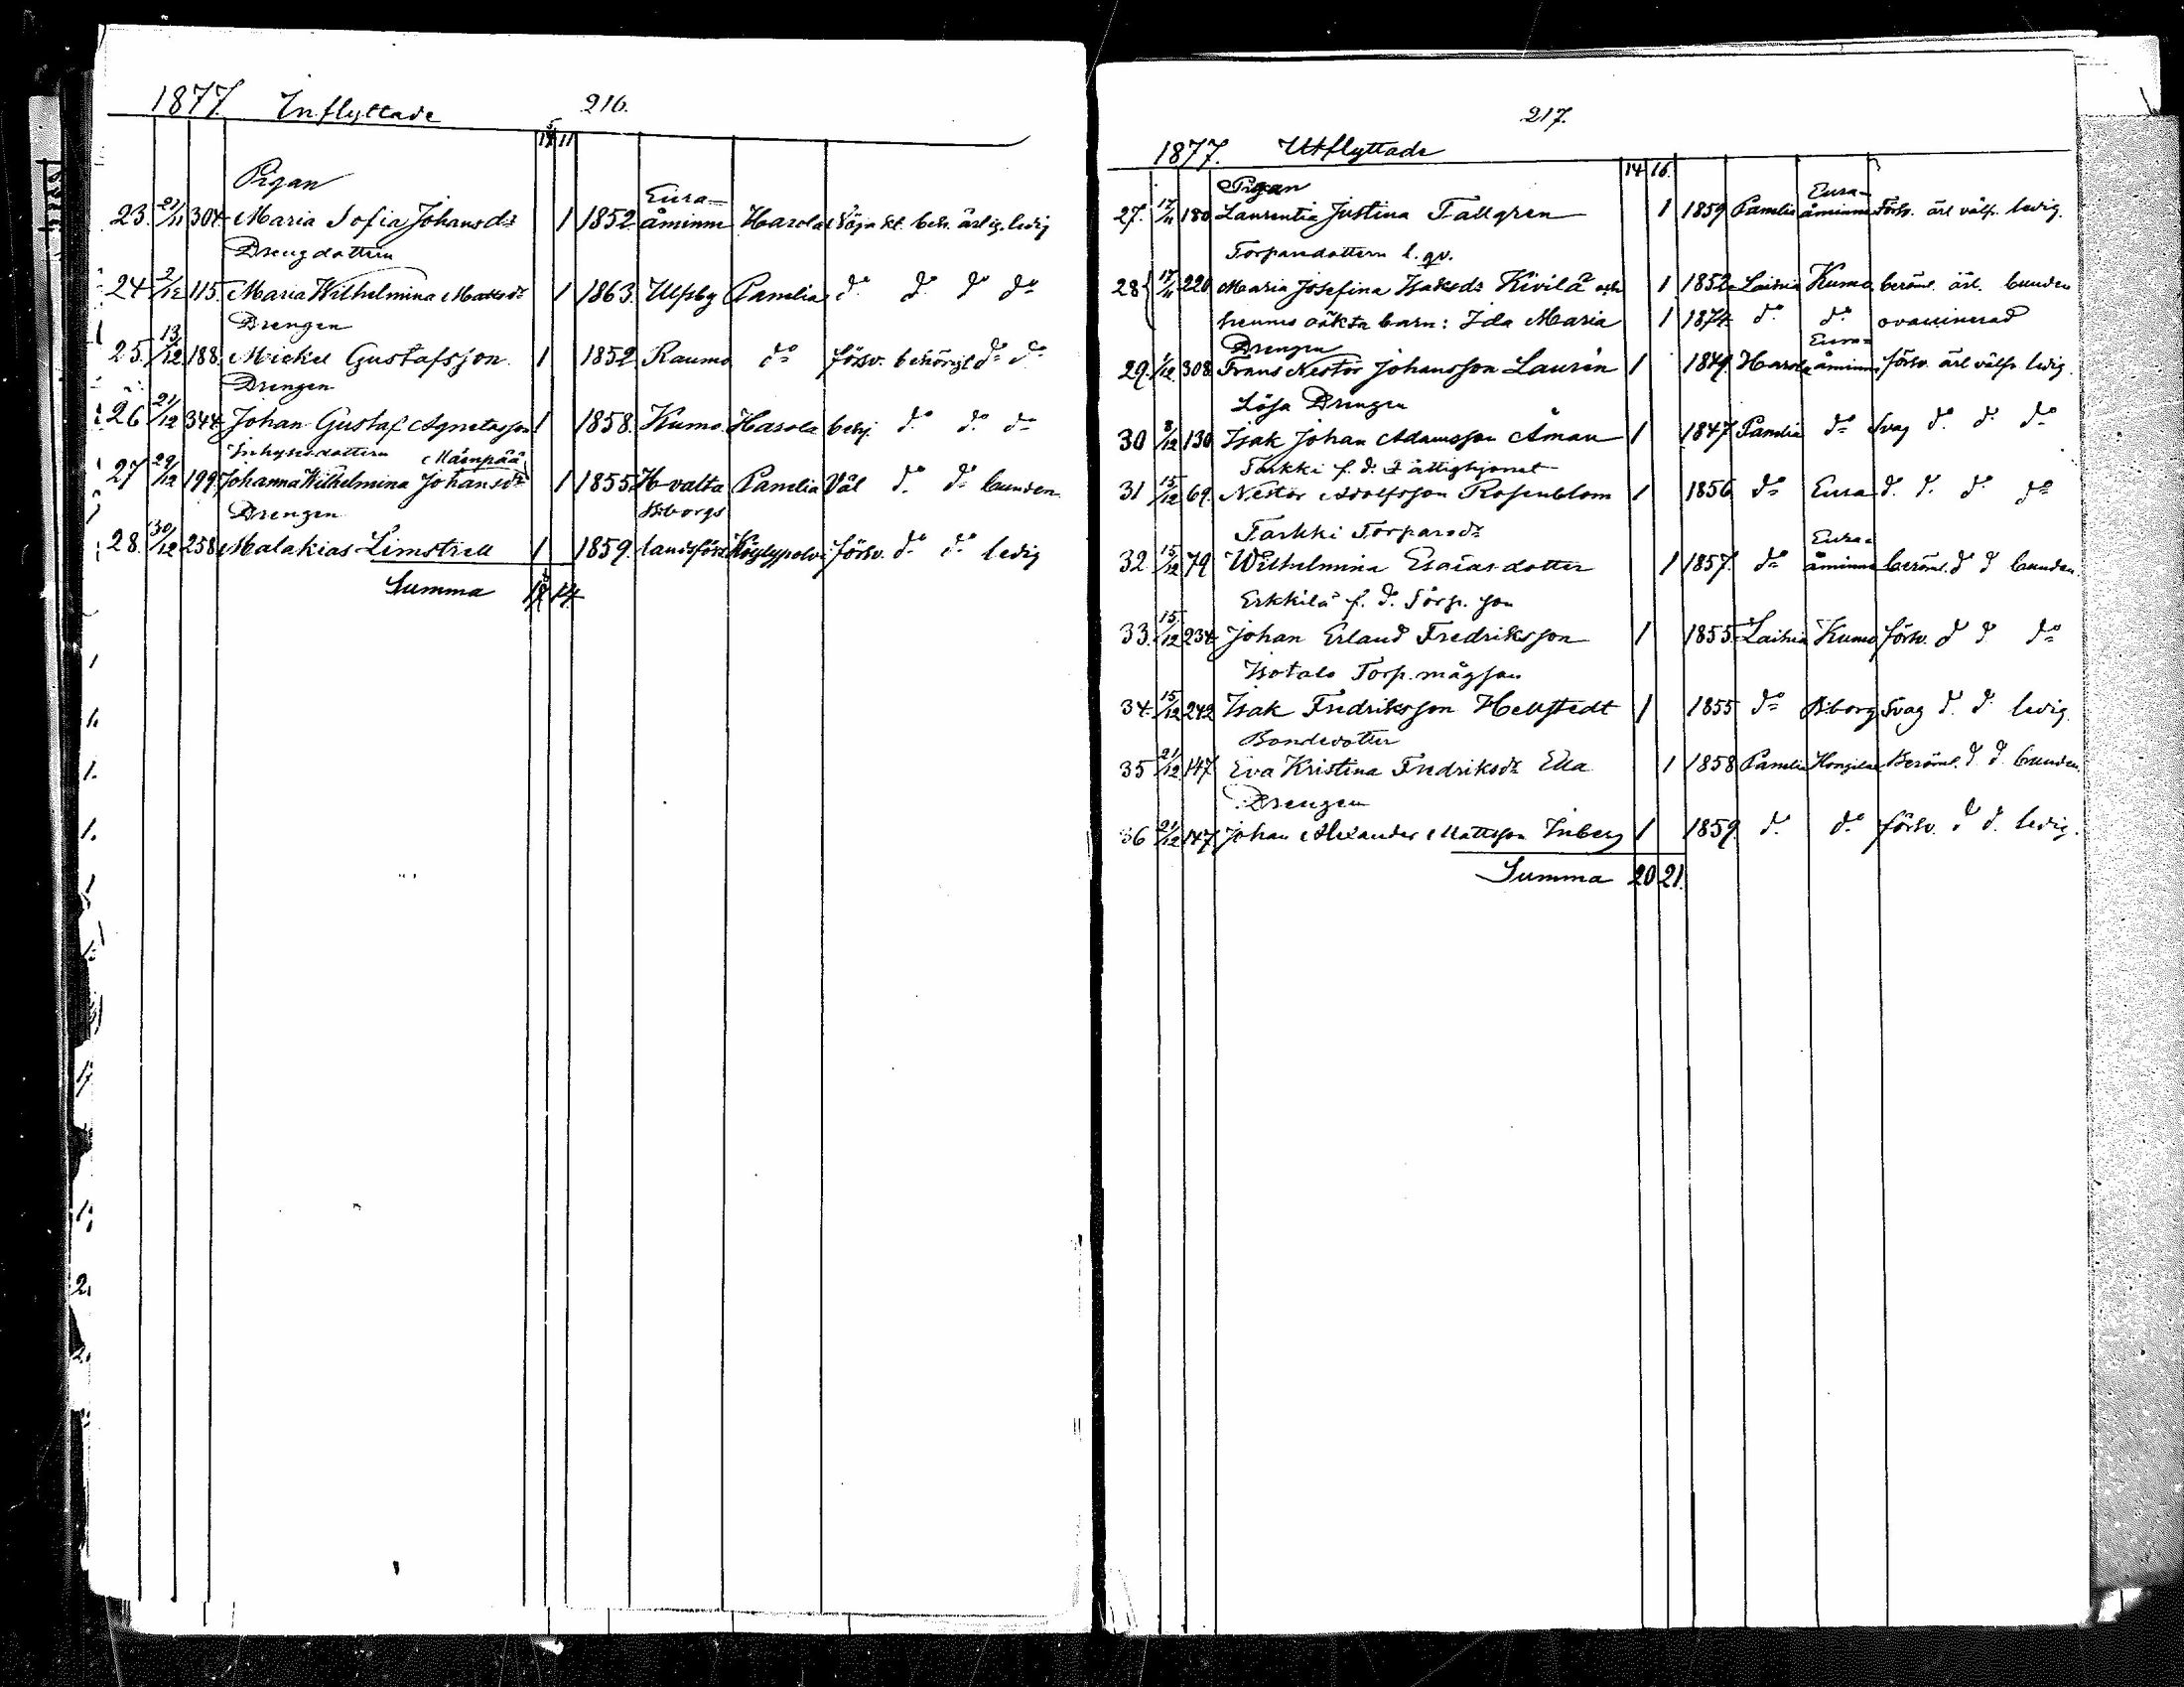 1877. Inflyttade 216.
11
Pigan Eura-
23. 21/11 304. Maria Sofia Johansdr 1 1852 åminne Harola Nöja kl. beh. ärlig. ledig
Drengdottern
24 2/12 115. Maria Wilhelmina Mattsdr 1 1863. Ulfsby Panelia do do do do
Drengen
25. 13/12 188. Mickel Gustafsson 1 1852 Raumo do försv. behörigt do do
Drengen
26 21/12 344 Johan Gustaf Agnetasson 1 1858. Kumo Harola behj do do do
Inhysesdottern Mäenpää
27 29/12 199. Johanna Wilhelmina Johansdr 1 1855 H-valta Panelia Väl do do bunden
Drengen Bborgs
28. 30/12 258 Malakias Limstrell 1 1859. landsförs. Köylypolvi försv. do do ledig
Summa 14
217.
1877. Utflyttade
14 16.
Pigan Eura-
27. 17/11 180 Laurentia Justina Tallgren 1 1859 Panelia åminne Förtr. ärl välfr. ledig.
Torparedottern l. qv.
28 17/11 220 Maria Josefina Isaksdr Kivilä och 1 1852 Laihia Kumo beröml. ärl. bunden
hennes oäkta barn: Ida Maria 1 1874 do do ovaccinerad
Drengen Eura-
29. 1/12 308. Frans Nestor Johansson Laurén 1 1849. Harola åminne försv. ärl välfr ledig.
Lösa Drengen
30 8/12 130 Isak Johan Adamsson Åman 1 1847 Panelia do Svag do do do
Tarkki f. d. Fättighjonet
31 15/12 69. Nestor Adolfsson Rosenblom 1 1856 do Eura d. d. do do
Tarkki Torparedr Eura-
32. 15/12 79 Wilhelmina Esaiasdotter 1 1857. do åminne beröml. d d bunden.
Erkkilä f. d. Torp. son
33. 15/12 234 Johan Erland Fredriksson 1 1855 Laihia Kumo försv. d d do
Isotalo Torp. mågson
34. 15/12 242 Isak Fredriksson Hellstedt 1 1855 do Bborg Svag d. d. ledig.
Bondedotter
35 21/12 147 Eva Kristina Fredriksdr Ella 1 1858 Panelia Hongilax Beröml. d d bunden.
Drengen
36 21/12 147. Johan Alexander Mattsson Inberg 1 1859. do do försv. d d. ledig.
Summa 20 21.